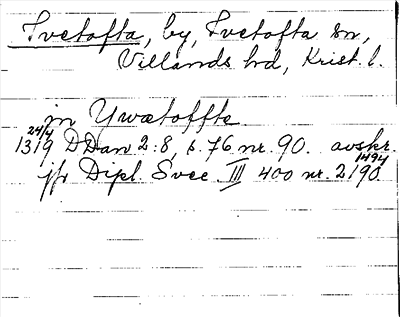 Ivetofta, by, Ivetofta sn,
Villands hd, Krist. l.
in Ywætoffte
24/4
1319 DDan 2:8, s. 76 nr. 90. avskr.
1494
jfr Dipl. Svec. III 400 nr. 2190.